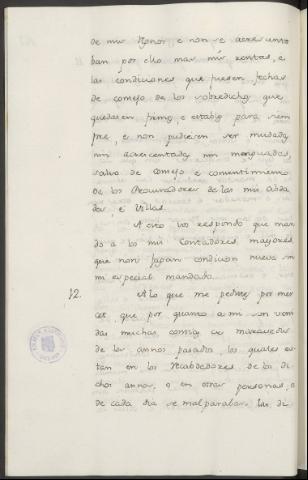 de mis Regnos, e non se acrescento
ban por ello mas mis rentas, e
las condiciones que fuesen fechas
de consejo de los sobredichos que
quedasen firmes, e estables para siem
pre, e non pudiesen ser mudadas,
nin acrecentadas, nin menguadas,
salvo de consejo e consentimiento
de los Procuradores de las mis Cibda
des, e Villas.
A esto vos respondo que man
do a los mis Contadores mayores,
que non fagan condicion nueva sin
mi especial mandado.
12.
A lo que me pedistes por mer
cet, que por quanto a mi son veni
das muchas contias de maravedis
de los annos pasados, los quales es
tan en los Recabdadores de los di
chos annos, o en otras personas, o
de cada dia se malparaban las di